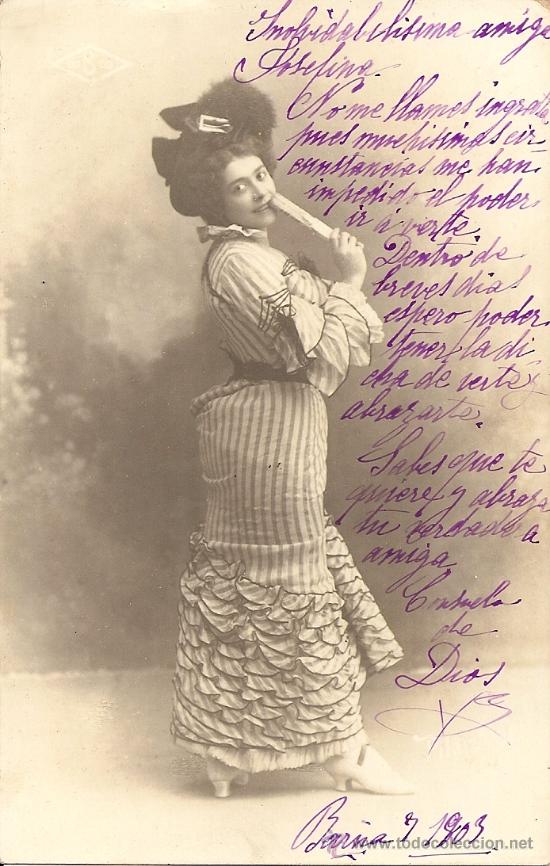 Inolvidabilisima amiga
Josefina.
No me llames ingrata,
pues muchisimas cir-
cunstancias me han
impedido el poder
ir á verte.
Dentro de
breves dias
espero poder
tener la di
cha de verte y
abrazarte.
Sabes que te
quiere y abraza
tu verdadera
amiga
Consuelo
de
Dios
Barna 7 1903
www.todocoleccion.net